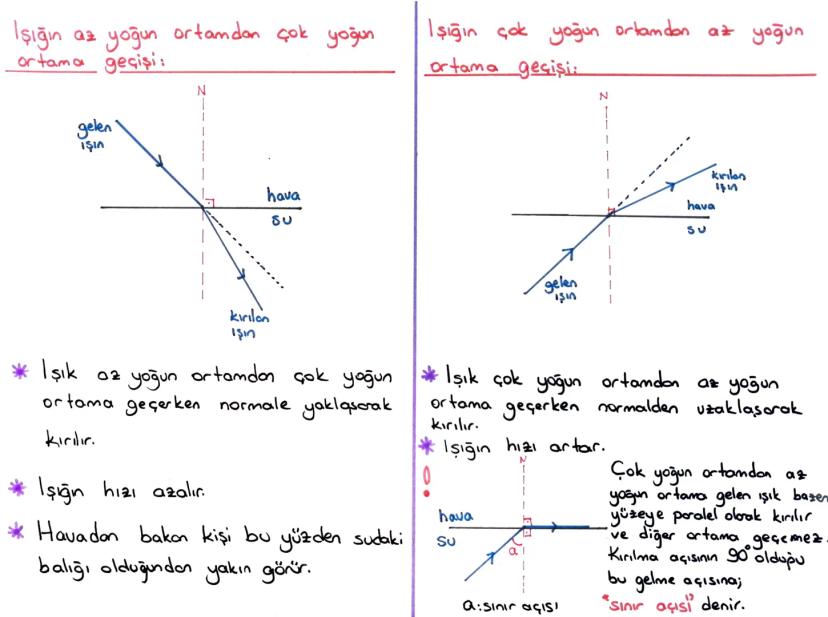 Işığın az yoğun ortamdan çok yoğun
ortama geçişi:
N
gelen
ışın
hava
su
kırılan
ışın
* Işık az yoğun ortamdan çok yoğun
ortama geçerken normale yaklaşarak
kırılır.
* Işığın hızı azalır.
* Havadan bakan kişi bu yüzden sudaki
balığı olduğundan yakın görür.
Işığın çok yoğun ortamdan az yoğun
ortama geçişi:
N
kırılan
ışın
hava
su
gelen
ışın
* Işık çok yoğun ortamdan az yoğun
ortama geçerken normalden uzaklaşarak
kırılır.
* Işığın hızı artar.
!
N
hava
su
a
a:sınır açısı
Çok yoğun ortamdan az
yoğun ortama gelen ışık bazen
yüzeye paralel olarak kırılır
ve diğer ortama geçemez.
Kırılma açısının 90° olduğu
bu gelme açısına;
"sınır açısı" denir.